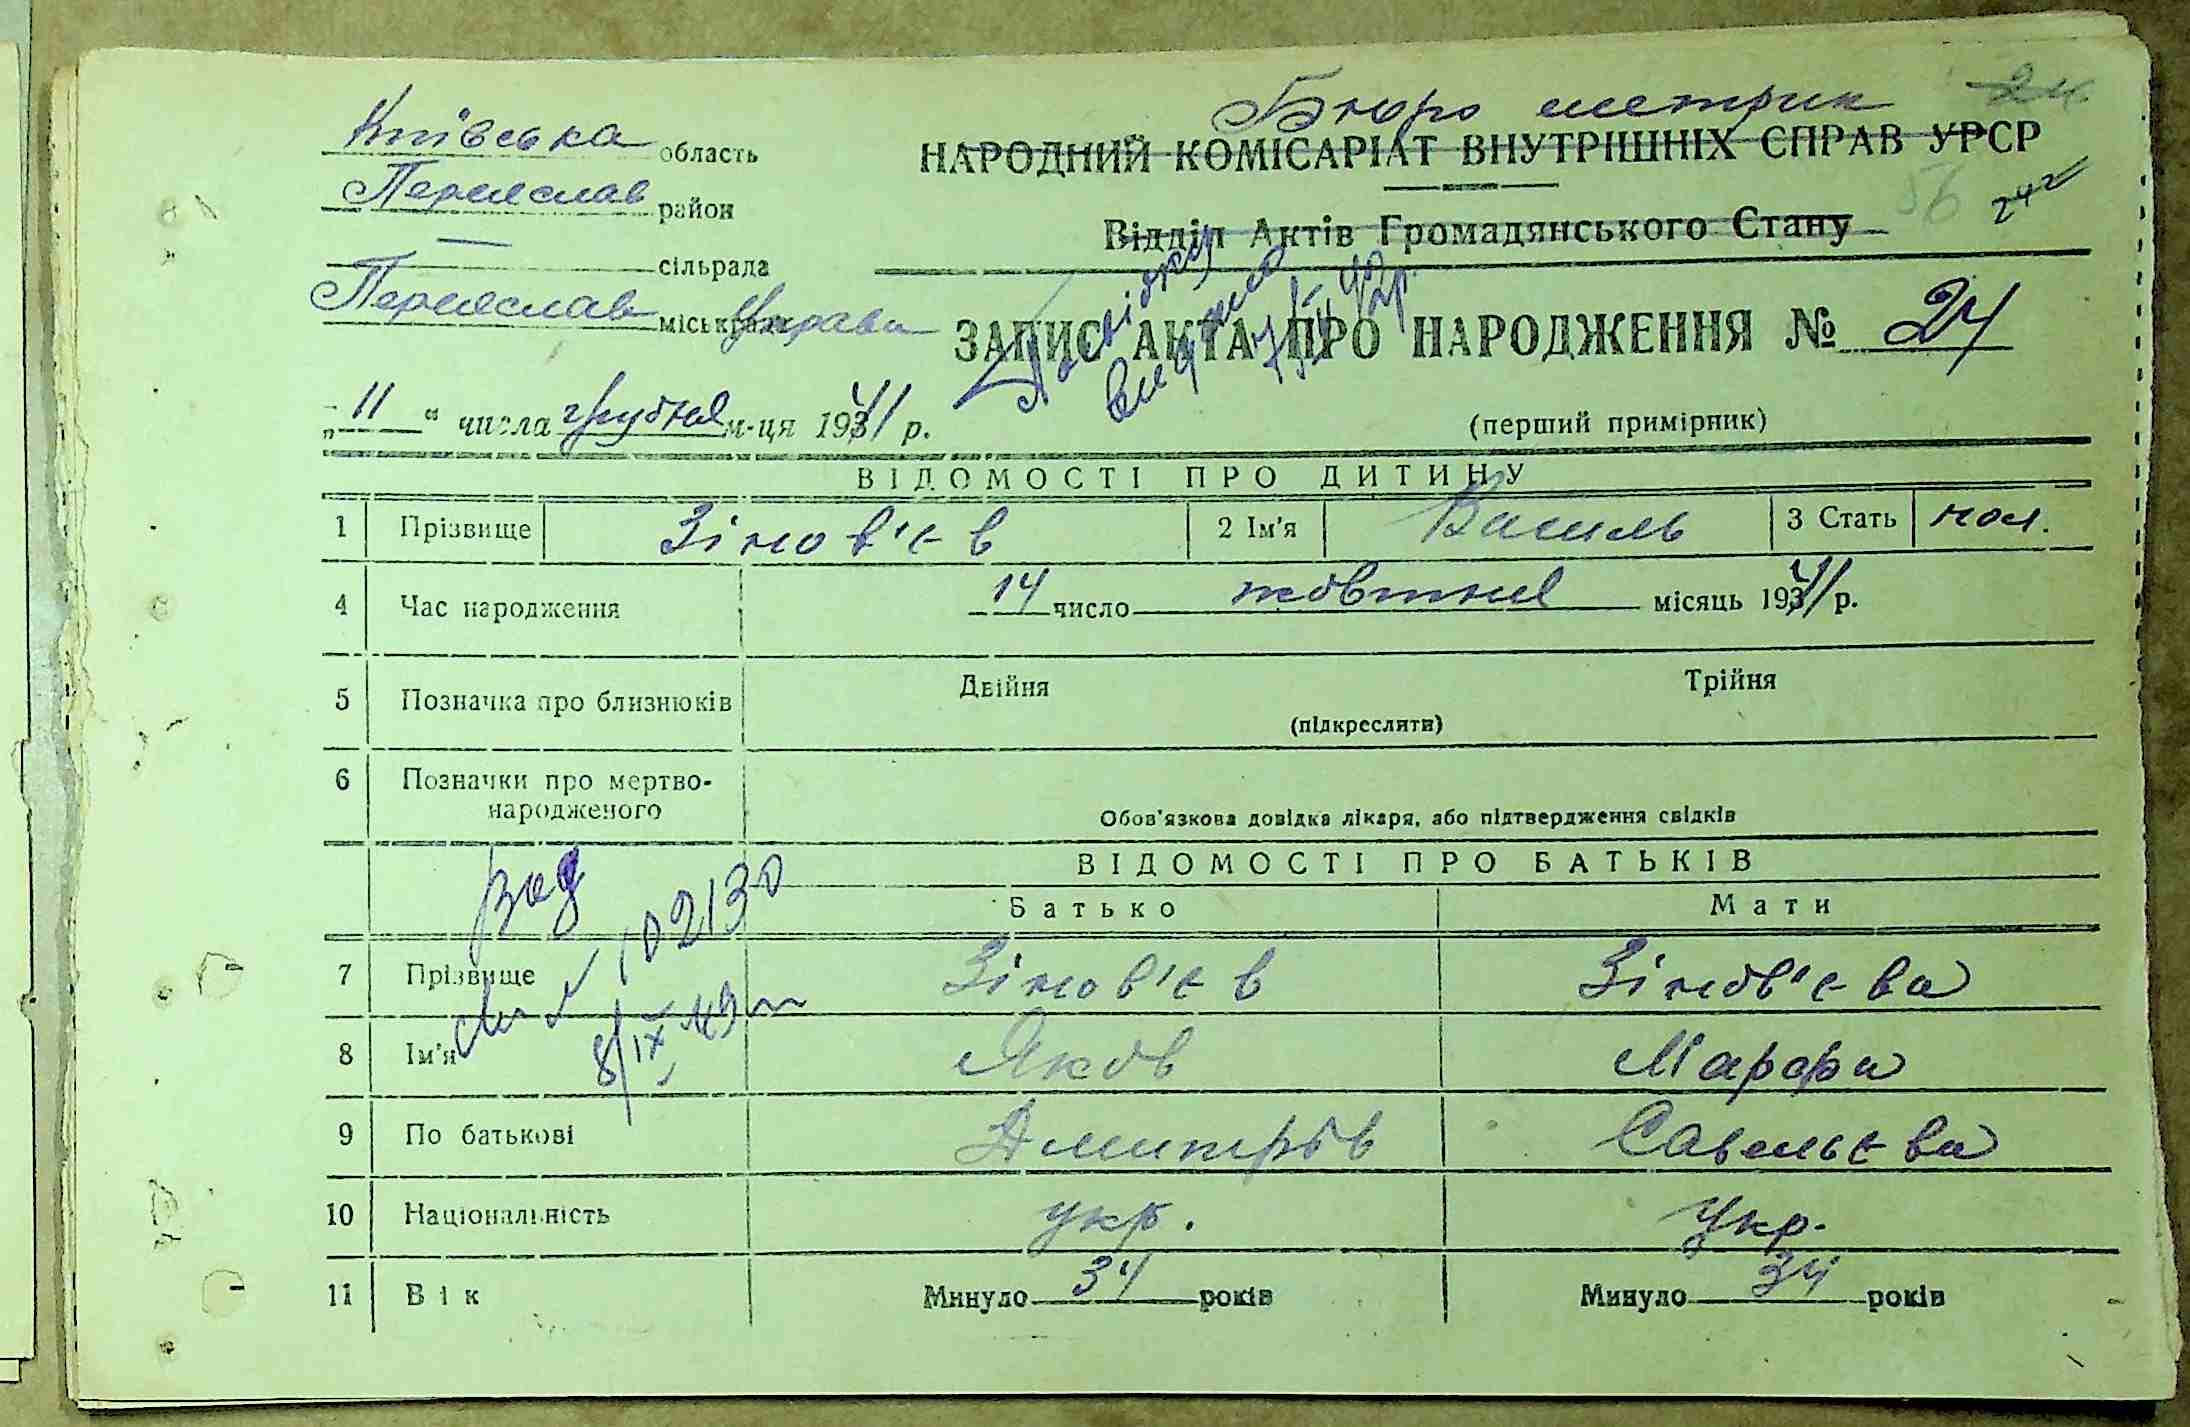 Київська область
Переяслав район
— сільрада
Переяслав міськрада Управа
Бюро метрик
НАРОДНИЙ КОМІСАРІАТ ВНУТРІШНІХ СПРАВ УРСР
Відділ Актів Громадянського Стану
56
242
ЗАПИС АКТА ПРО НАРОДЖЕННЯ № 24
Довідку
видано
„11“ числа грудня м-ця 1941 р.
(перший примірник)
ВІДОМОСТІ ПРО ДИТИНУ
1 Прізвище Зінов'єв 2 Ім'я Василь 3 Стать чол.
4 Час народження 14 число жовтня місяць 1941 р.
5 Позначка про близнюків Двійня Трійня
(підкреслити)
6 Позначки про мертво-
народженого
Обов'язкова довідка лікаря, або підтвердження свідків
ВІДОМОСТІ ПРО БАТЬКІВ
Батько Мати
7 Прізвище Зінов'єв Зінов'єва
8 Ім'я Яков Марфа
9 По батькові Дмитрів Савельєва
10 Національність укр. Укр.
11 Вік Минуло 34 років Минуло 34 років
102130
8/IX 49